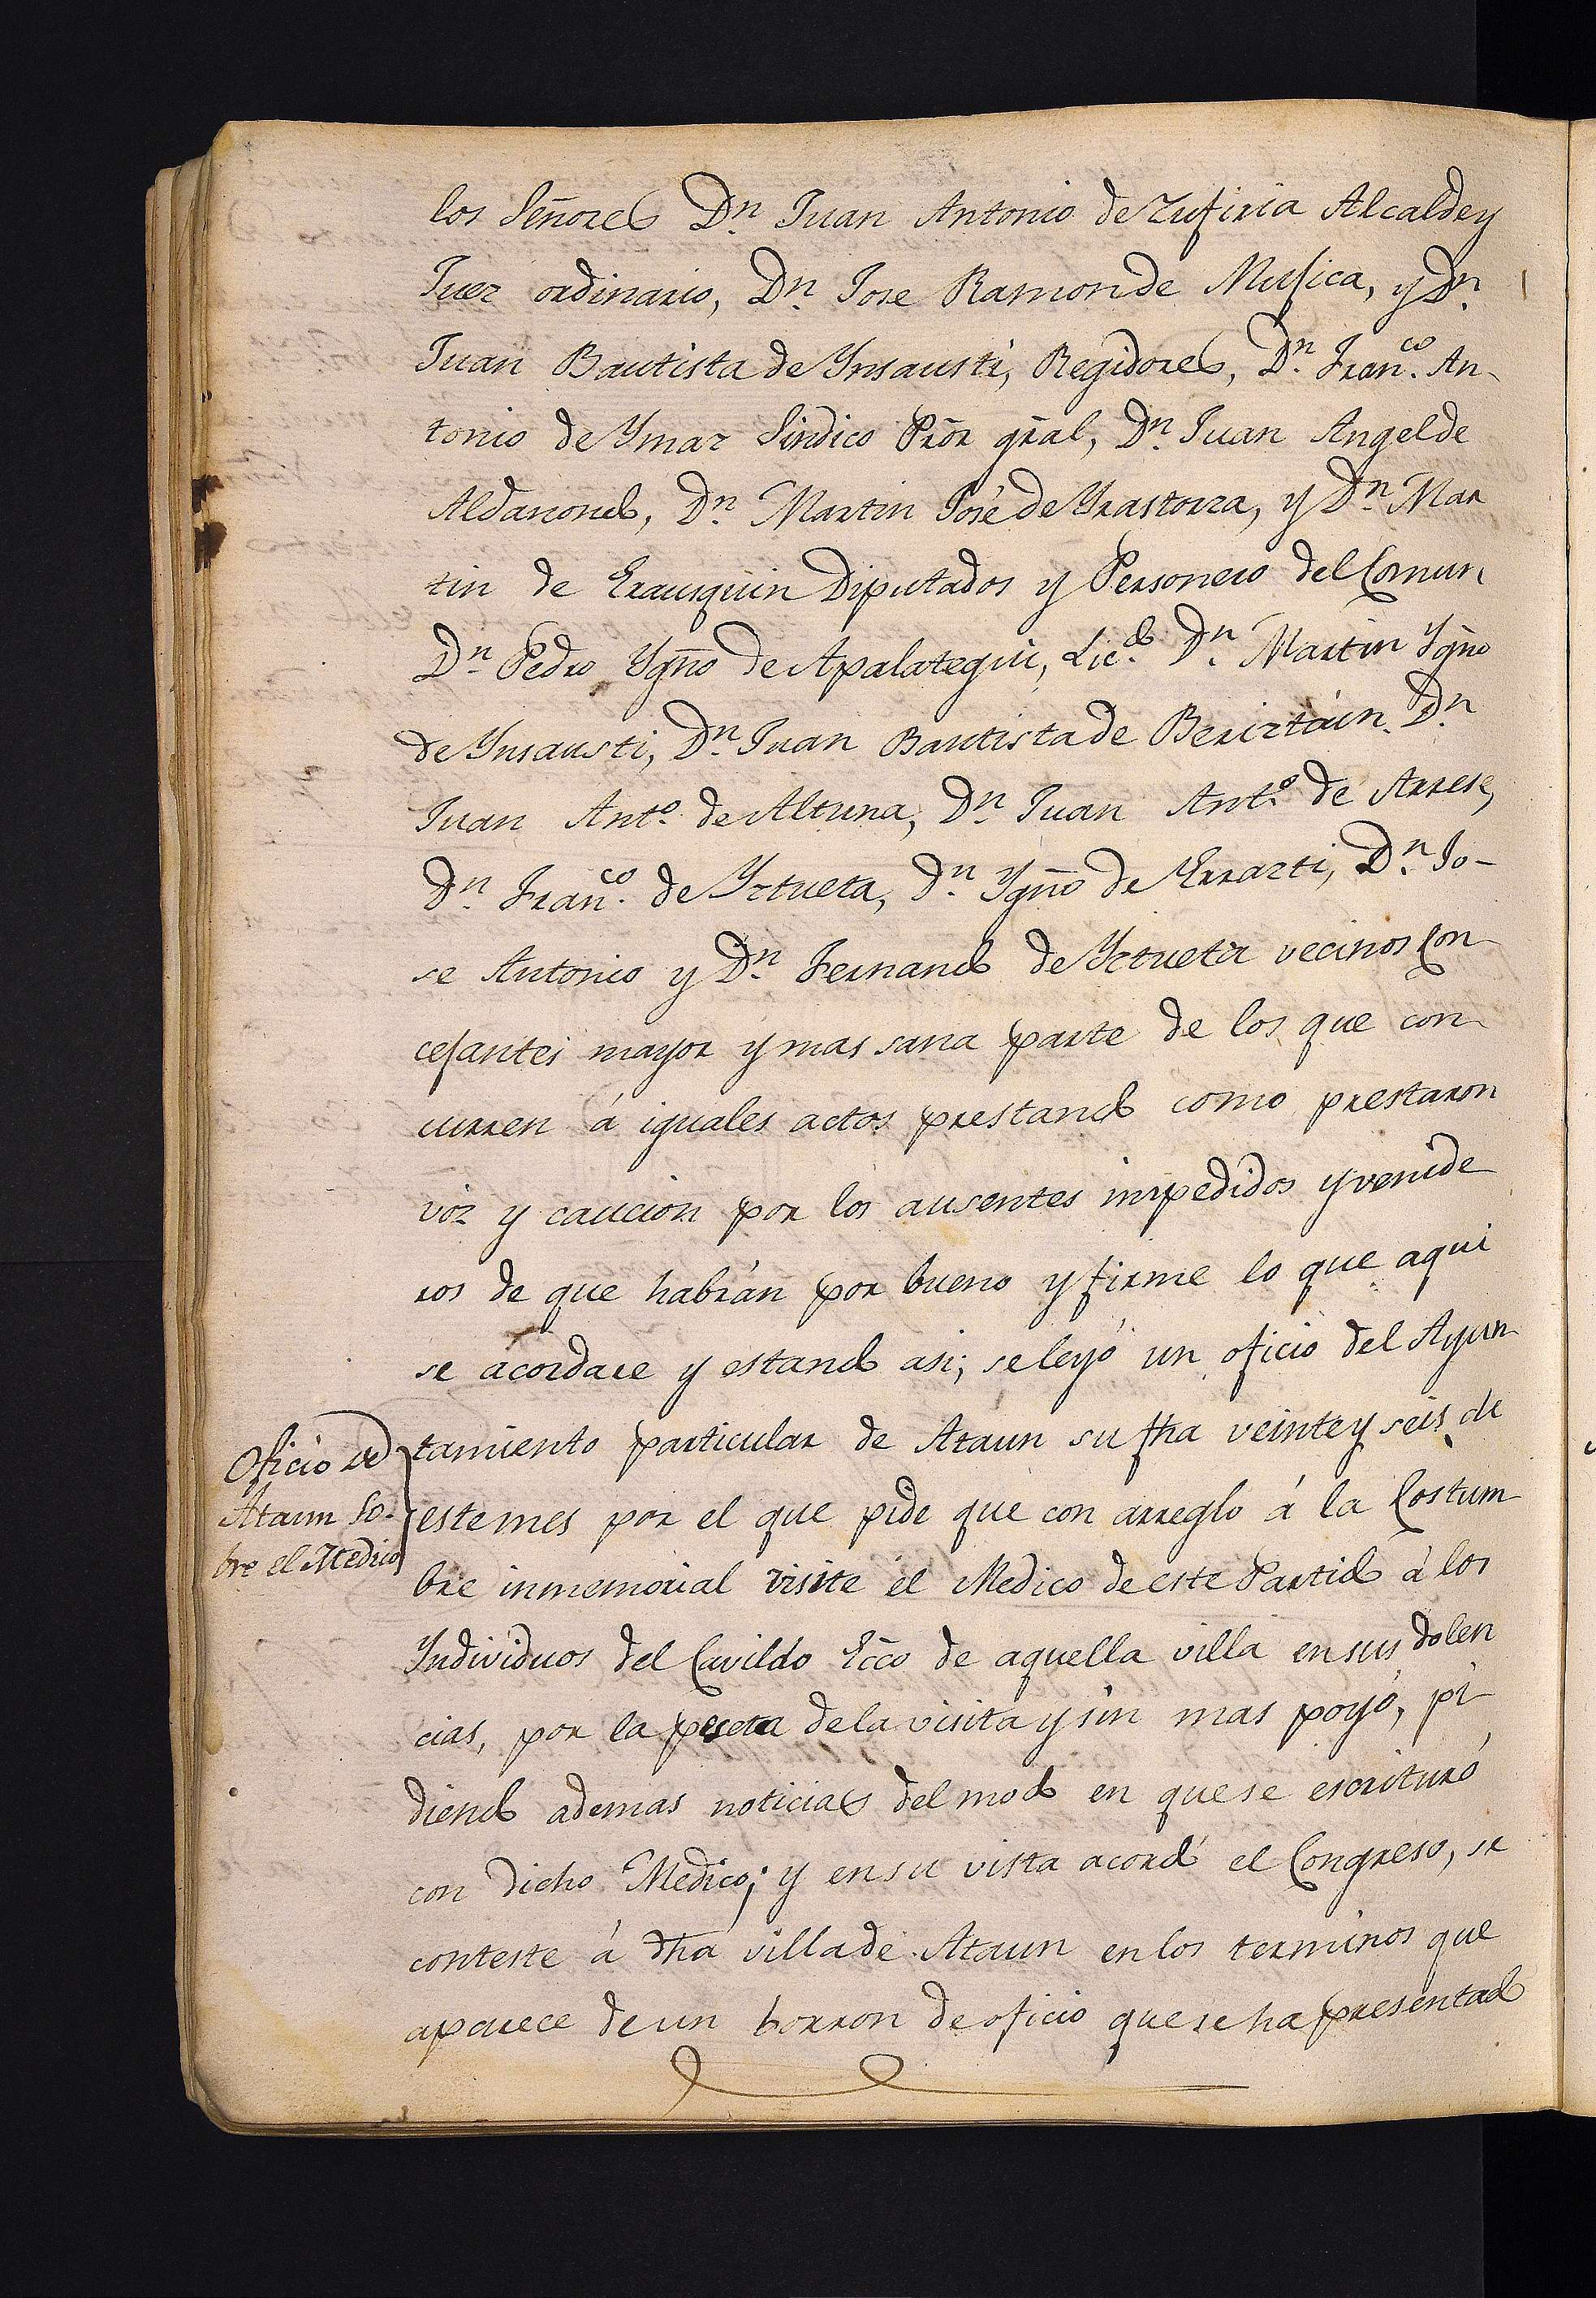 los Señores Dn. Juan Antonio de Zufiria Alcalde y
Juez ordinario, Dn. Jose Ramon de Mugica, y Dn.
Juan Bautista de Ynsausti, Regidores, Dn. Franco. An-
tonio de Ymaz Sindico Pror gral, Dn. Juan Angel de
Aldanondo, Dn. Martin José de Yrastorza, y Dn. Mar
tin de Erausquin Diputados y Personero del Comun
Dn. Pedro Ygno de Apalategui, Licdo. Dn. Martin Ygno
de Ynsausti, Dn. Juan Bautista de Beriztáin. Dn.
Juan Anto. de Altuna, Dn. Juan Anto. de Arrese,
Dn. Franco. de Yztueta, Dn. Ygno de Errazti, Dn. Jo-
se Antonio y Dn. Fernando de Yztueta vecinos Con
cejantes mayor y mas sana parte de los que con
curren á iguales actos prestando como prestaron
voz y caucion por los ausentes impedidos y venide
ros de que habrán por bueno y firme lo que aqui
se acordare y estando asi; se leyó un oficio del Ayun
Oficio de
Ataun so-
bre el Medico
tamiento particular de Ataun su fha veinte y seis de
este mes por el que pide que con arreglo á la Costum
bre inmemorial visite el Medico de este Partido á los
Yndividuos del Cavildo Ecco de aquella villa en sus dolen
cias, por la peseta de la visita y sin mas poyo, pi
diendo ademas noticias del modo en que se escrituró
con dicho Medico; y en su vista acordó el Congreso, se
conteste á dha villa de Ataun en los terminos que
aparece de un borron de oficio que se ha presentado